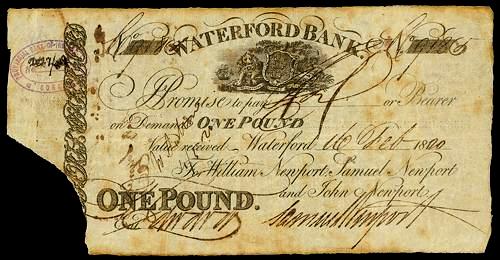 No WATERFORD BANK. No
I Promise to pay or Bearer
on Demand ONE POUND
Value received Waterford 16 Feb 1820
For William Newport, Samuel Newport
and John Newport
ONE POUND.
Entd Samuel Newport